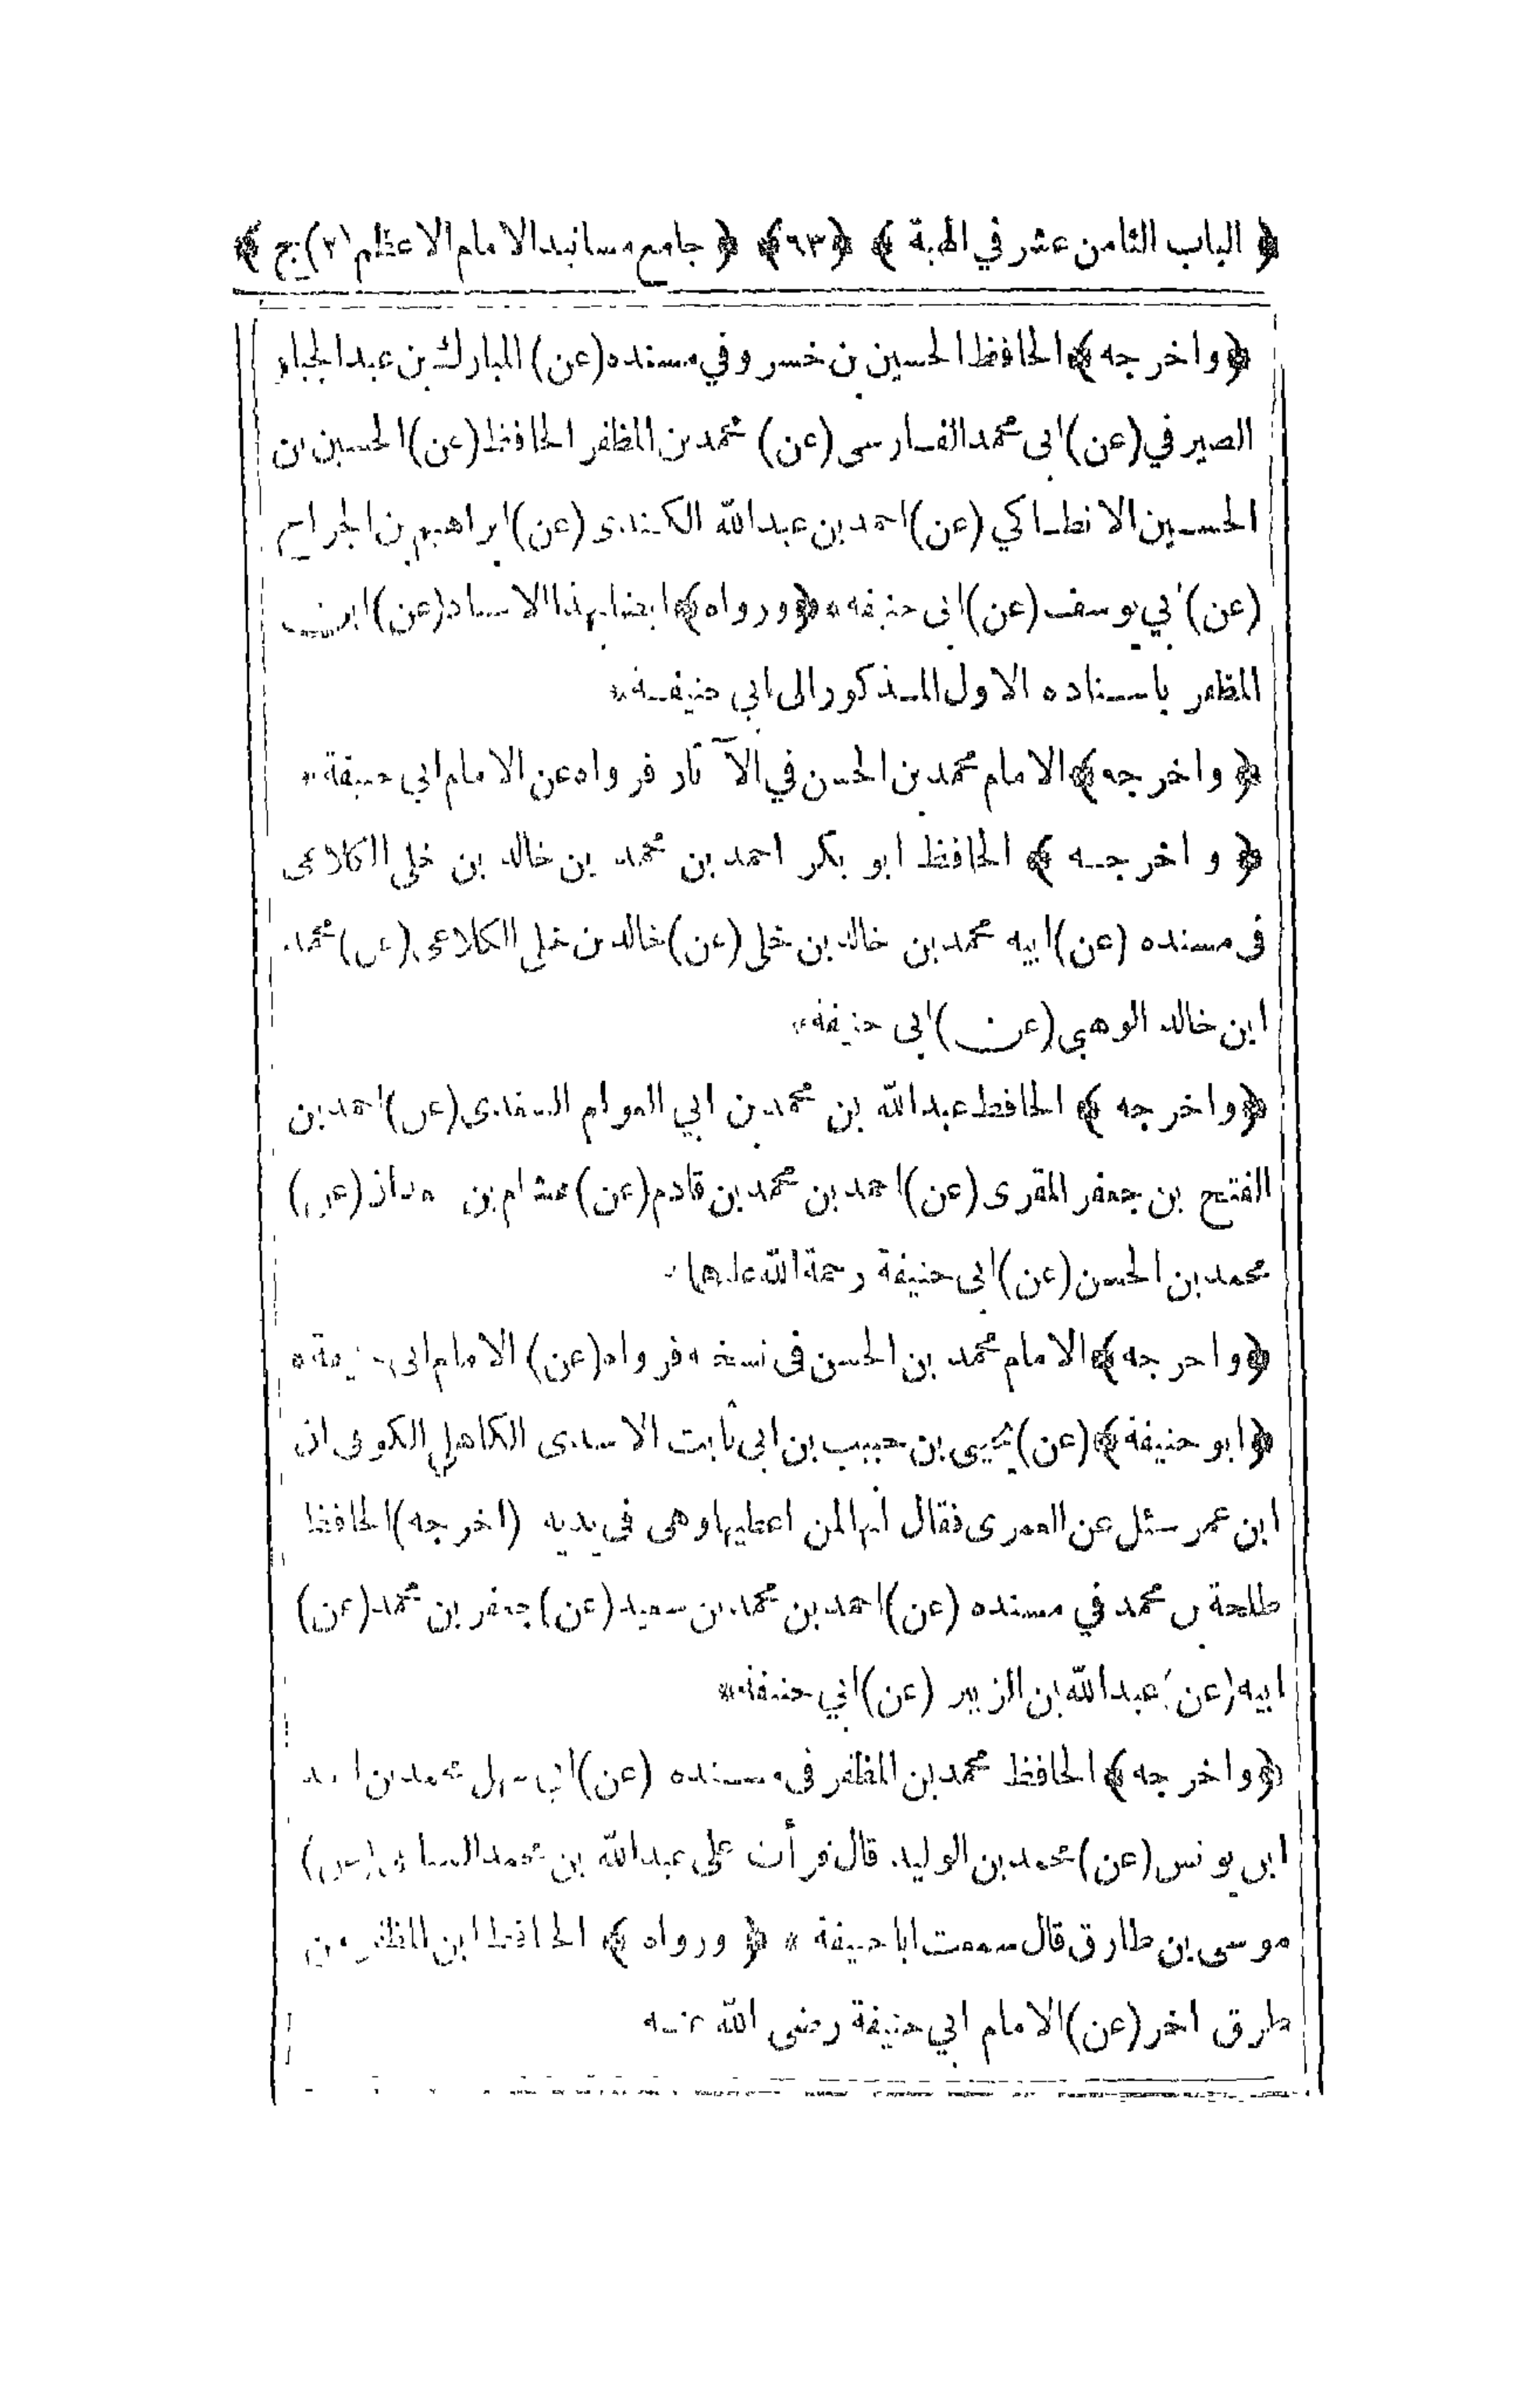 ﴿ الباب الثامن عشر في الهبة ﴾ ﴿٩٣﴾ ﴿ جامع مسانيد الامام الاعظم (٢) ج ﴾
﴿واخرجه﴾ الحافظ الحسين بن خسرو في مسنده (عن) المبارك بن عبد الجبار
الصيرفي (عن) ابى محمد الفارسى (عن) محمد بن المظفر الحافظ (عن) الحسين بن
الحسين الانطاكي (عن) احمد بن عبد الله الكندى (عن) ابراهيم بن الجراح
(عن) ابي يوسف (عن) ابى حنيفه * ﴿ورواه﴾ ايضا بهذا الاسناد (عن) ابن
المظفر باسناده الاول المذكور الى ابي حنيفة *
﴿ واخرجه ﴾ الامام محمد بن الحسن في الآثار فرواه عن الامام ابي حنيفة *
﴿ واخرجه ﴾ الحافظ ابو بكر احمد بن محمد بن خالد بن خلى الكلاعى
فى مسنده (عن) ابيه محمد بن خالد بن خلى (عن) خالد بن خلى الكلاعى (عن) محمد
ابن خالد الوهبي (عن) ابى حنيفة *
﴿واخرجه ﴾ الحافظ عبد الله بن محمد بن ابي العوام السغدى (عن) احمد بن
الفتح بن جعفر المقرى (عن) احمد بن محمد بن قادم (عن) بن (عن)
محمد بن الحسن (عن) ابى حنيفة رحمة الله عليهما
﴿واخرجه﴾ الامام محمد بن الحسن فى نسخته فرواه (عن) الامام ابى حنيفة *
﴿ابو حنيفة﴾ (عن) يحيى بن حبيب بن ابى ثابت الاسدى الكاهلي الكوفى ان
ابن عمر سئل عن العمرى فقال انها لمن اعطيها وهى فى يديه (اخرجه) الحافظ
طلحة بن محمد في مسنده (عن) احمد بن محمد بن سعيد (عن) جعفر بن محمد (عن)
ابيه (عن) عبد الله بن الزبير (عن) ابي حنيفة *
﴿واخرجه﴾ الحافظ محمد بن المظفر فى مسنده (عن) ابى سهل محمد بن احمد
ابن يونس (عن) محمد بن الوليد قال قرأت على عبد الله بن محمد (عن)
موسى بن طارق قال سمعت ابا حنيفة * ﴿ ورواه ﴾ الحافظ ابن المظفر من
طرق اخر (عن) الامام ابي حنيفة رضى الله عنه